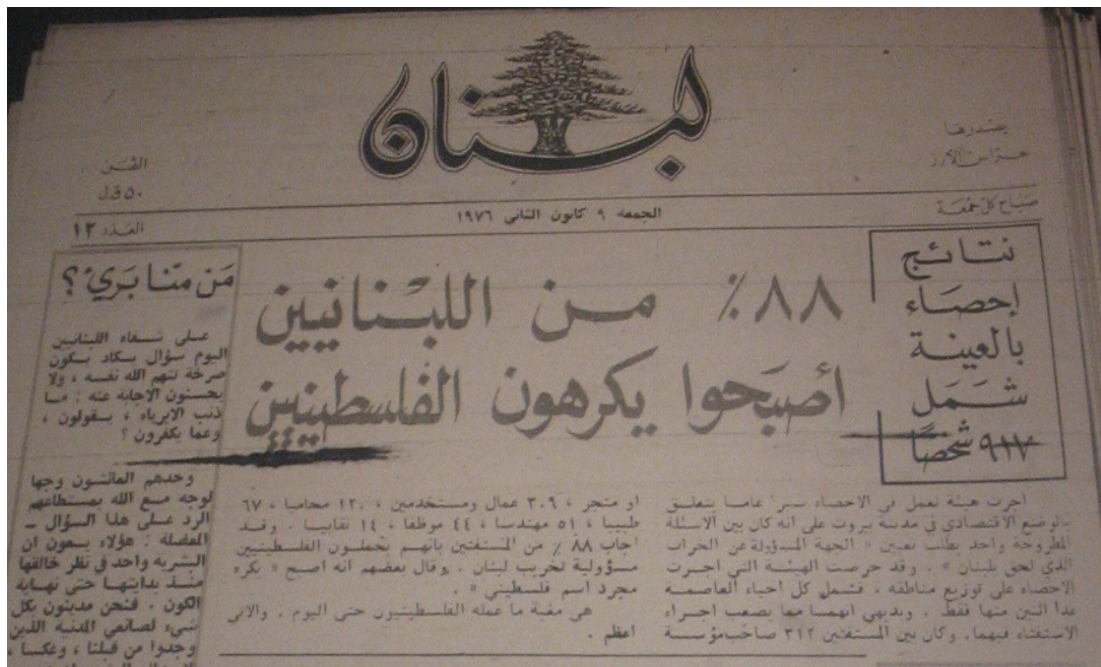 لبنان
يصدرها
حراس الأرز
صباح كل جمعة
الثمن
٥٠ ق.ل
العدد ١٣
الجمعه ٩ كانون الثاني ١٩٧٦
نتائج
إحصاء
بالعينة
شمل
٩١٧ شخصًا
٨٨٪ من اللبنانيين
أصبحوا يكرهون الفلسطينيين
اجرت هيئة تعمل في الاحصاء سبرا عاما يتعلق
بالوضع الاقتصادي في مدينة بيروت على انه كان بين الاسئلة
المطروحة واحد يطلب تعيين « الجهة المسؤولة عن الخراب
الذي لحق بلبنان » . وقد حرصت الهيئة التي اجرت
الاحصاء على توزيع مناطقه ، فشمل كل احياء العاصمة
عدا اثنين منها فقط . وبديهي انهما مما يصعب اجراء
الاستفتاء فيهما. وكان بين المستفتين ٣١٢ صاحب مؤسسة
او متجر ، ٣٠٩ عمال ومستخدمين ، ١٢٠ محاميا ، ٦٧
طبيبا ، ٥١ مهندسا ، ٤٤ موظفا ، ١٤ نقابيا . وقد
اجاب ٨٨ ٪ من المستفتين بانهم يحملون الفلسطينيين
مسؤولية تخريب لبنان . وقال بعضهم انه اصبح « يكره
مجرد اسم فلسطيني » .
هي مغبة ما عمله الفلسطينيون حتى اليوم . والاتي
اعظم .
مَن منّا بَريء ؟
على شفاه اللبنانيين
اليوم سؤال يكاد يكون
صرخة تتهم الله نفسه ، ولا
يحسنون الاجابة عنه : ما
ذنب الابرياء ، يقولون ،
وعما يكفرون ؟
وحدهم الماثشون وجها
لوجه مع الله بمستطاعهم
الرد على هذا السؤال ــ
المعضلة : هؤلاء يعون ان
البشريه واحد في نظر خالقها
منذ بدايتها حتى نهاية
الكون . فنحن مدينون بكل
شيء لصانعي المدنية الذين
وجدوا من قبلنا ، وعكسا ،